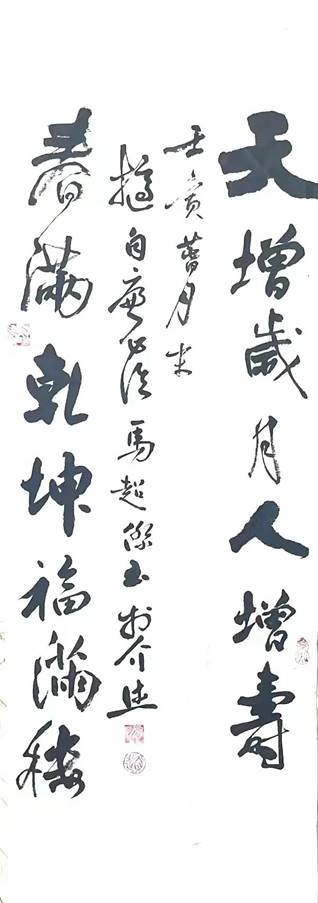 天增歲月人增壽
壬寅月
摘自馬超傑書於介
春滿乾坤福滿樓